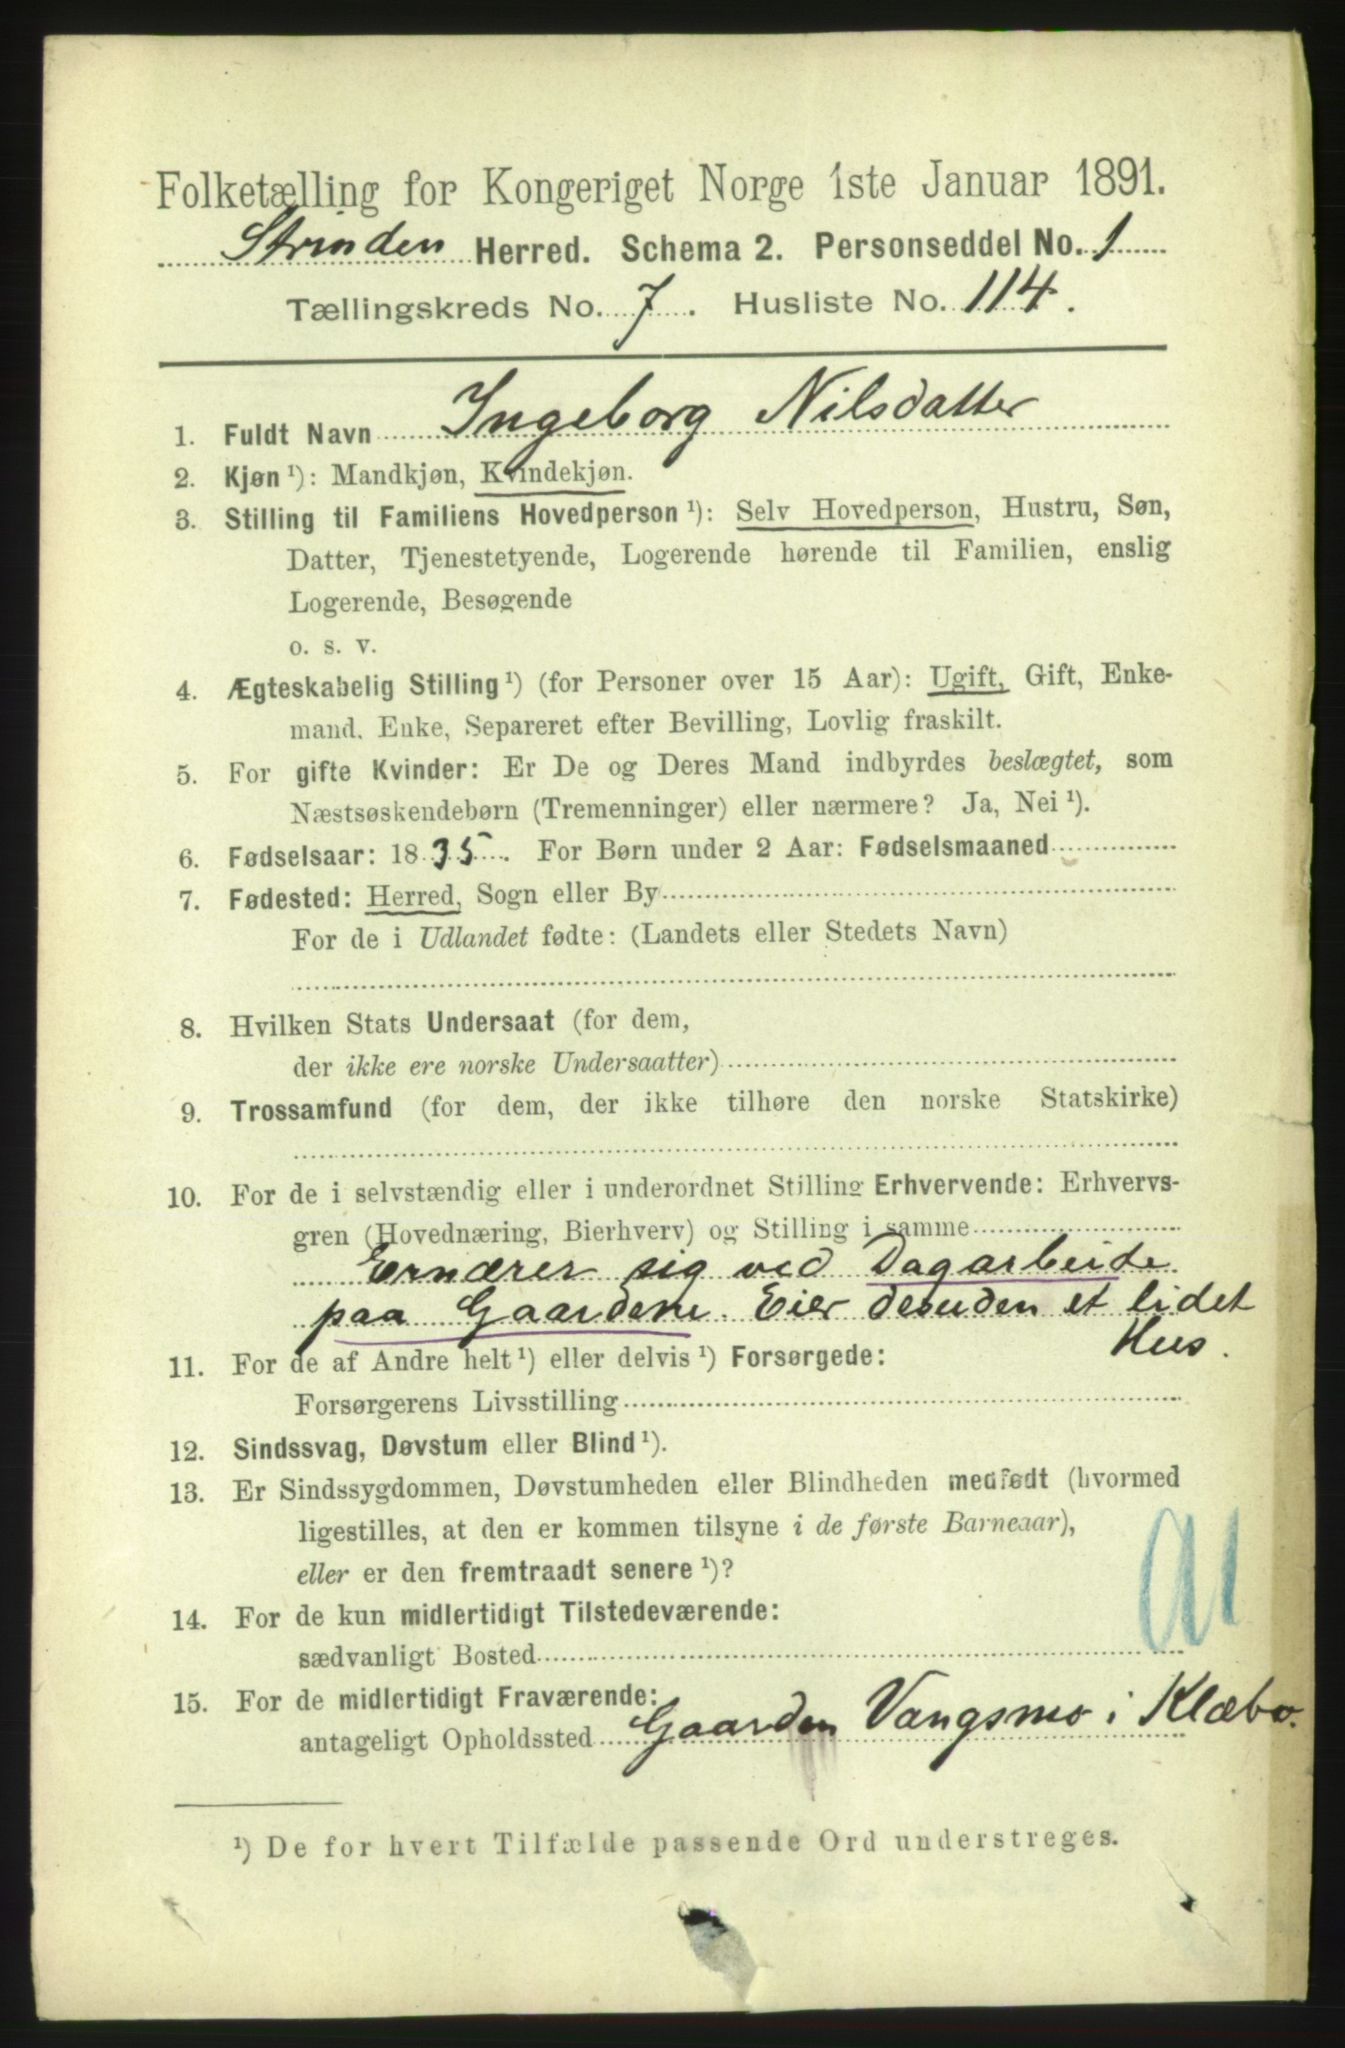 Folketælling for Kongeriget Norge 1ste Januar 1891.
Strinden Herred. Schema 2. Personseddel No. 1
Tællingskreds No. 7. Husliste No. 114.
1. Fuldt Navn Ingeborg Nilsdatter
2. Kjøn ¹): Mandkjøn, Kvindekjøn.
3. Stilling til Familiens Hovedperson ¹): Selv Hovedperson, Hustru, Søn,
Datter, Tjenestetyende, Logerende hørende til Familien, enslig
Logerende, Besøgende
o. s. v.
4. Ægteskabelig Stilling ¹) (for Personer over 15 Aar): Ugift, Gift, Enke-
mand, Enke, Separeret efter Bevilling, Lovlig fraskilt.
5. For gifte Kvinder: Er De og Deres Mand indbyrdes beslægtet, som
Næstsøskendebørn (Tremenninger) eller nærmere? Ja, Nei ¹).
6. Fødselsaar: 1835. For Børn under 2 Aar: Fødselsmaaned
7. Fødested: Herred, Sogn eller By
For de i Udlandet fødte: (Landets eller Stedets Navn)
8. Hvilken Stats Undersaat (for dem,
der ikke ere norske Undersaatter)
9. Trossamfund (for dem, der ikke tilhøre den norske Statskirke)
10. For de i selvstændig eller i underordnet Stilling Erhvervende: Erhvervs-
gren (Hovednæring, Bierhverv) og Stilling i samme
Ernærer sig ved Dagarbeide
paa Gaardene. Eier desuden et lidet
Hus.
11. For de af Andre helt ¹) eller delvis ¹) Forsørgede:
Forsørgerens Livsstilling
12. Sindssvag, Døvstum eller Blind ¹).
13. Er Sindssygdommen, Døvstumheden eller Blindheden medfødt (hvormed
ligestilles, at den er kommen tilsyne i de første Barneaar),
eller er den fremtraadt senere ¹)?
14. For de kun midlertidigt Tilstedeværende:
sædvanligt Bosted
15. For de midlertidigt Fraværende:
antageligt Opholdssted Gaarden Vangsmo i Klæbo.
¹) De for hvert Tilfælde passende Ord understreges.